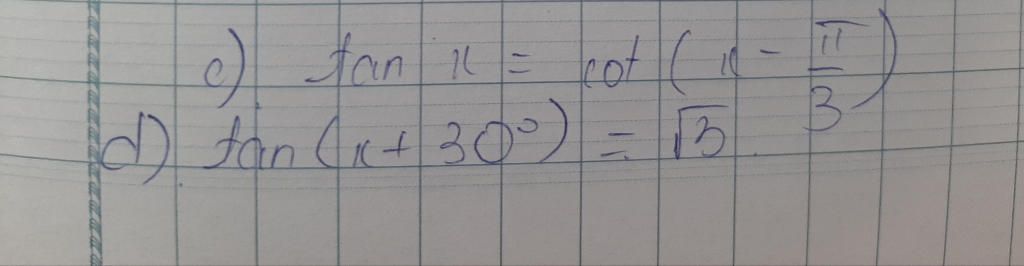 c) tan x = cot (x - π/3)
d) tan (x + 30°) = √3